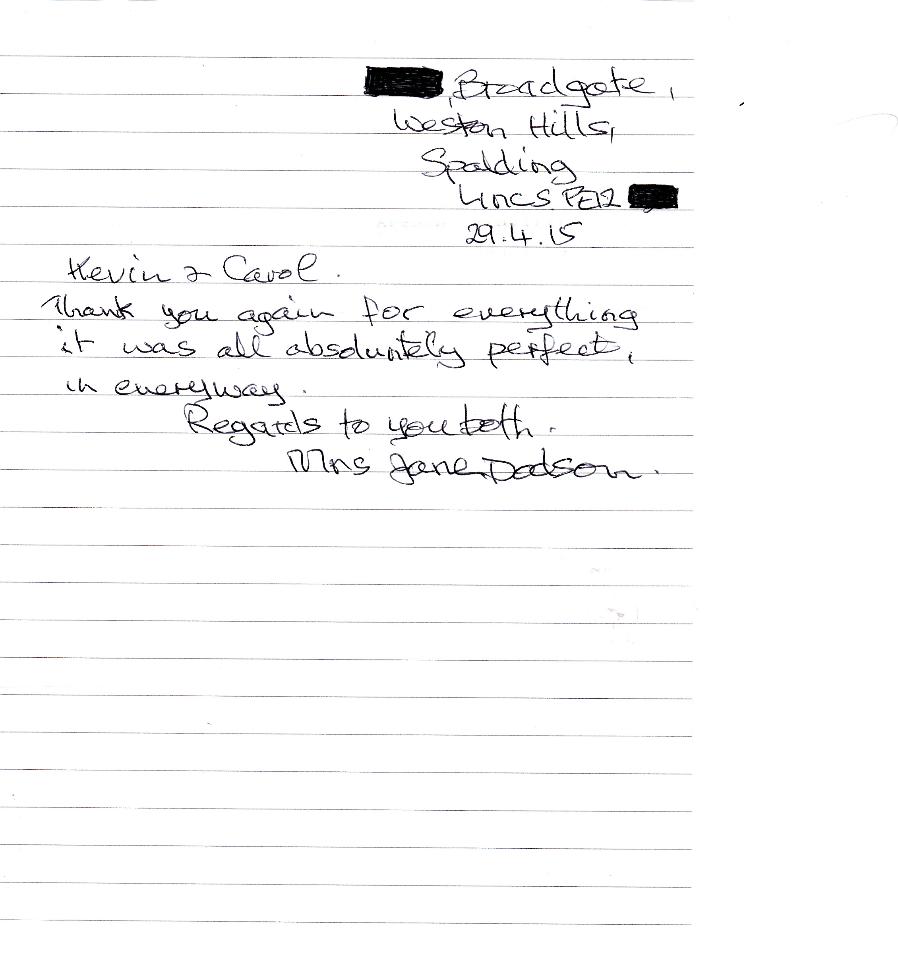 Broadgate,
Weston Hills,
Spalding
Lincs PE12
29.4.15
Kevin & Carol.
Thank you again for everything
it was all absoluntely perfect,
in everyway.
Regards to you both.
Mrs Jane Dodson.